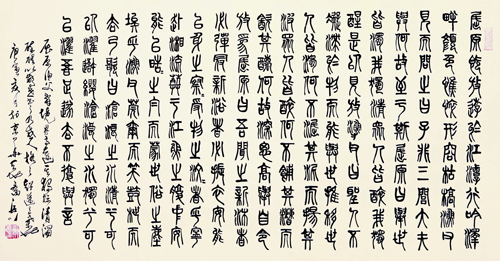 屈原既放遊於江潭行吟澤
畔顏色憔悴形容枯槁漁父
見而問之曰子非三閭大夫
與何故至于斯屈原曰舉世
皆濁我獨清眾人皆醉我獨
醒是以見放漁父曰聖人不
凝滯於物而能與世推移世
人皆濁何不淈其泥而揚其
波眾人皆醉何不餔其糟而
歠其醨何故深思高舉自令
放為屈原曰吾聞之新沐者
必彈冠新浴者必振衣安能
以身之察察受物之汶汶者乎寧
赴湘流葬於江魚之腹中安
能以皓皓之白而蒙世俗之塵
埃乎漁父莞爾而笑鼓枻而
去乃歌曰滄浪之水清兮可
以濯吾纓滄浪之水濁兮可
以濯吾足遂去不復與言